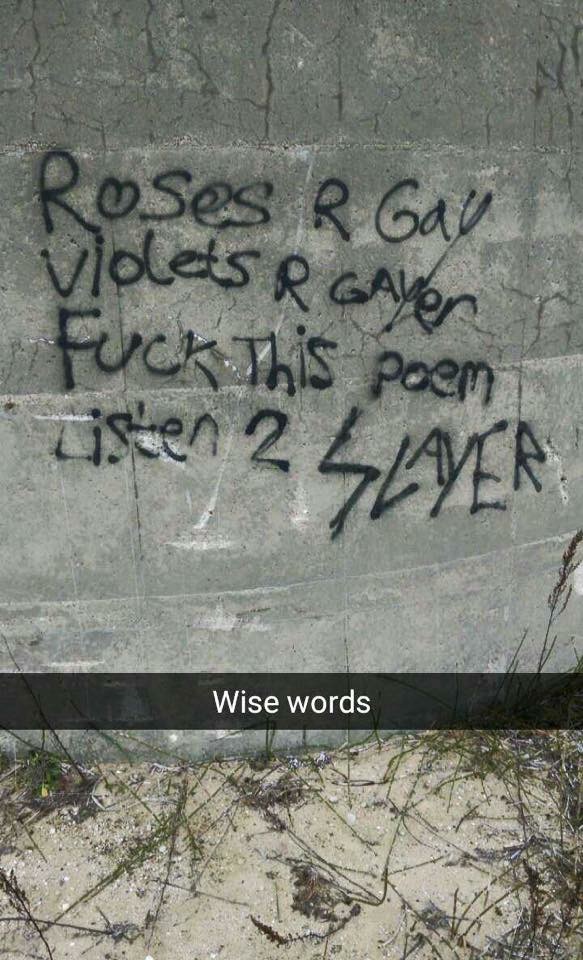 Roses R Gay
violets R GAYer
Fuck This poem
Listen 2 SLAYER
Wise words